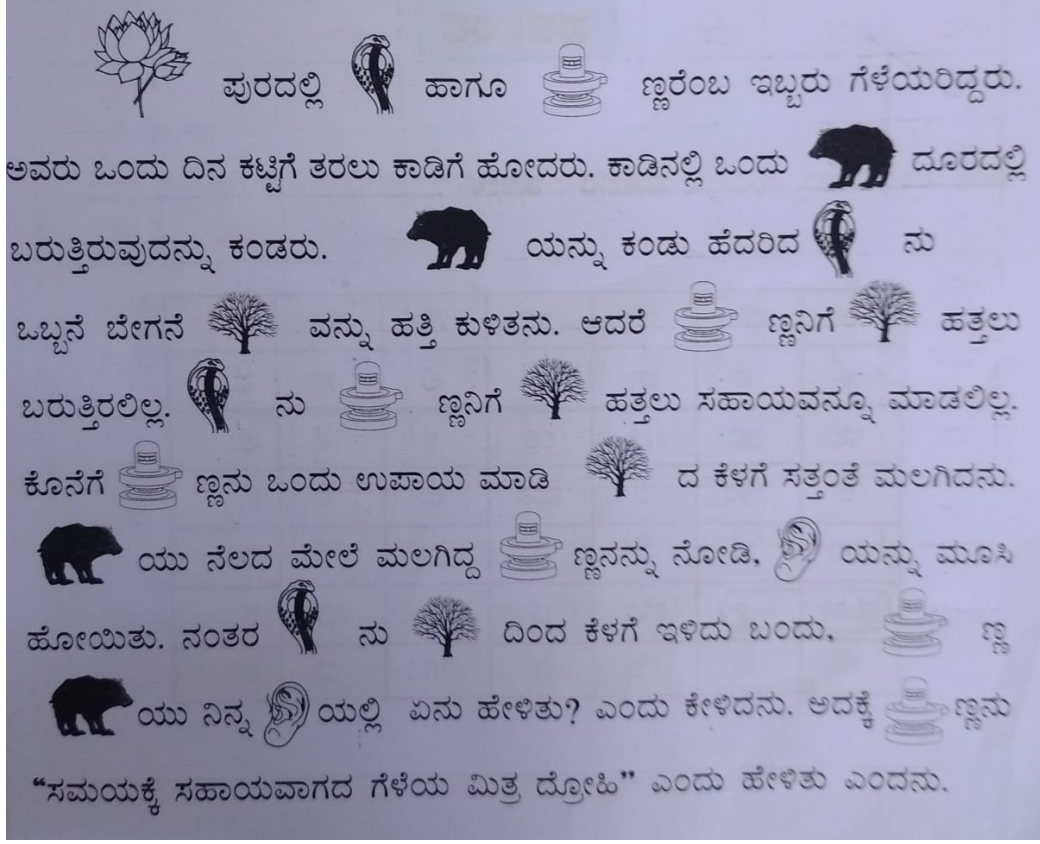 ಪುರದಲ್ಲಿ ಹಾಗೂ ಣ್ಣರೆಂಬ ಇಬ್ಬರು ಗೆಳೆಯರಿದ್ದರು.
ಅವರು ಒಂದು ದಿನ ಕಟ್ಟಿಗೆ ತರಲು ಕಾಡಿಗೆ ಹೋದರು. ಕಾಡಿನಲ್ಲಿ ಒಂದು ದೂರದಲ್ಲಿ
ಬರುತ್ತಿರುವುದನ್ನು ಕಂಡರು. ಯನ್ನು ಕಂಡು ಹೆದರಿದ ನು
ಒಬ್ಬನೆ ಬೇಗನೆ ವನ್ನು ಹತ್ತಿ ಕುಳಿತನು. ಆದರೆ ಣ್ಣನಿಗೆ ಹತ್ತಲು
ಬರುತ್ತಿರಲಿಲ್ಲ. ನು ಣ್ಣನಿಗೆ ಹತ್ತಲು ಸಹಾಯವನ್ನೂ ಮಾಡಲಿಲ್ಲ.
ಕೊನೆಗೆ ಣ್ಣನು ಒಂದು ಉಪಾಯ ಮಾಡಿ ದ ಕೆಳಗೆ ಸತ್ತಂತೆ ಮಲಗಿದನು.
ಯು ನೆಲದ ಮೇಲೆ ಮಲಗಿದ್ದ ಣ್ಣನನ್ನು ನೋಡಿ, ಯನ್ನು ಮೂಸಿ
ಹೋಯಿತು. ನಂತರ ನು ದಿಂದ ಕೆಳಗೆ ಇಳಿದು ಬಂದು, ಣ್ಣ
ಯು ನಿನ್ನ ಯಲ್ಲಿ ಏನು ಹೇಳಿತು? ಎಂದು ಕೇಳಿದನು. ಅದಕ್ಕೆ ಣ್ಣನು
“ಸಮಯಕ್ಕೆ ಸಹಾಯವಾಗದ ಗೆಳೆಯ ಮಿತ್ರ ದ್ರೋಹಿ” ಎಂದು ಹೇಳಿತು ಎಂದನು.